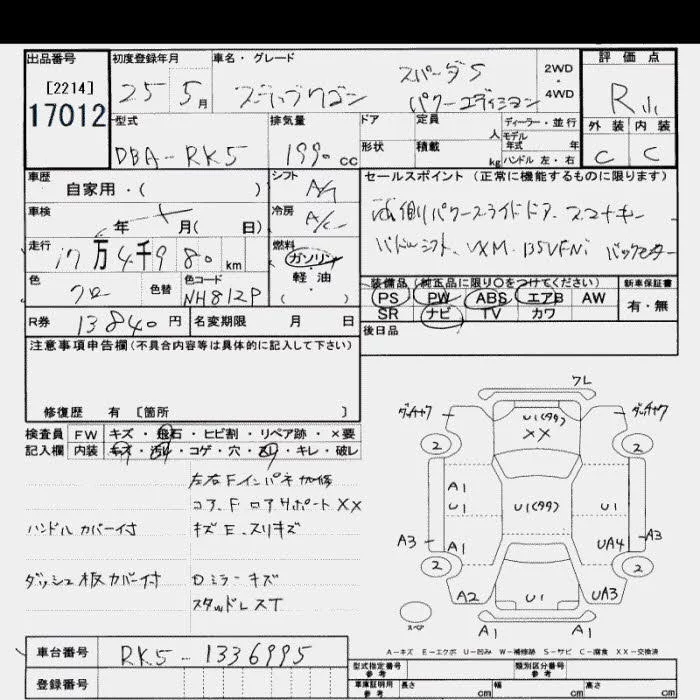 出品番号 初度登録年月 車名・グレード 評価点
[2214] 25 5月 スパーダS 2WD・4WD
17012 ステップワゴン パワーエディション R
型式 排気量 ドア 定員 人 ディーラー・並行 外装 内装
モデル年式 年
DBA-RK5 1990cc 形状 積載 kg ハンドル 左・右 C C
車歴 シフト セールスポイント (正常に機能するものに限ります)
自家用・( ) A/T
車検 年 月( 日) 冷房 A/C 両側パワースライドドア、スマートキー
走行 17万4千980km 燃料 ガソリン パドルシフト、VXM-135VFNi バックモニター
軽油・( )
色 クロ 色替 色コード NH812P 装備品 (純正品に限り○をつけてください) 新車保証書
PS PW ABS エアB AW 有・無
R券 13840円 名変期限 月 日 SR ナビ TV カワ
注意事項申告欄(不具合内容等は具体的に記入して下さい) 後日品
修復歴 有 [箇所 ]
検査員 FW キズ・飛石・ヒビ割・リペア跡・×要
記入欄 内装 キズ・汚れ・コゲ・穴・スレ・キレ・破レ
左右Fインパネ加修
コア、FロアサポートXX
ハンドルカバー付 キズE、スリキズ
ダッシュ板カバー付 Dミラーキズ
スタッドレスT
ワレ
U1(99)
XX
2 2
A1
U1 U1(99) U1
A3 A1 UA4 A3
2 2
A2 U1 UA3
スペア A1 A1
A-キズ E-エクボ U-凹み W-補修跡 S-サビ C-腐食 XX-交換済
車台番号 RK5-1336995
型式指定番号 参考 類別区分番号 参考
登録番号 車庫証明用 参考 長さ cm 幅 cm 高さ cm